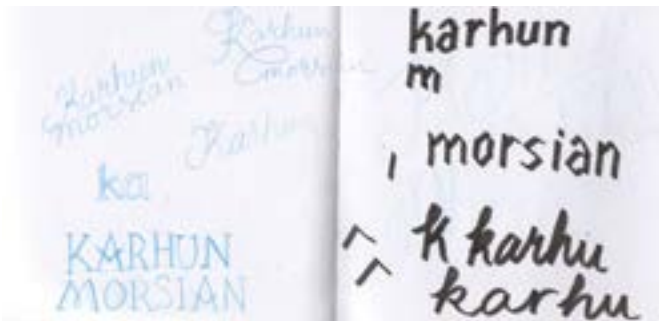 Karhun
morsian
Karhun
morsian
Karhun
ka
KARHUN
MORSIAN
karhun
m
morsian
k karhu
karhu